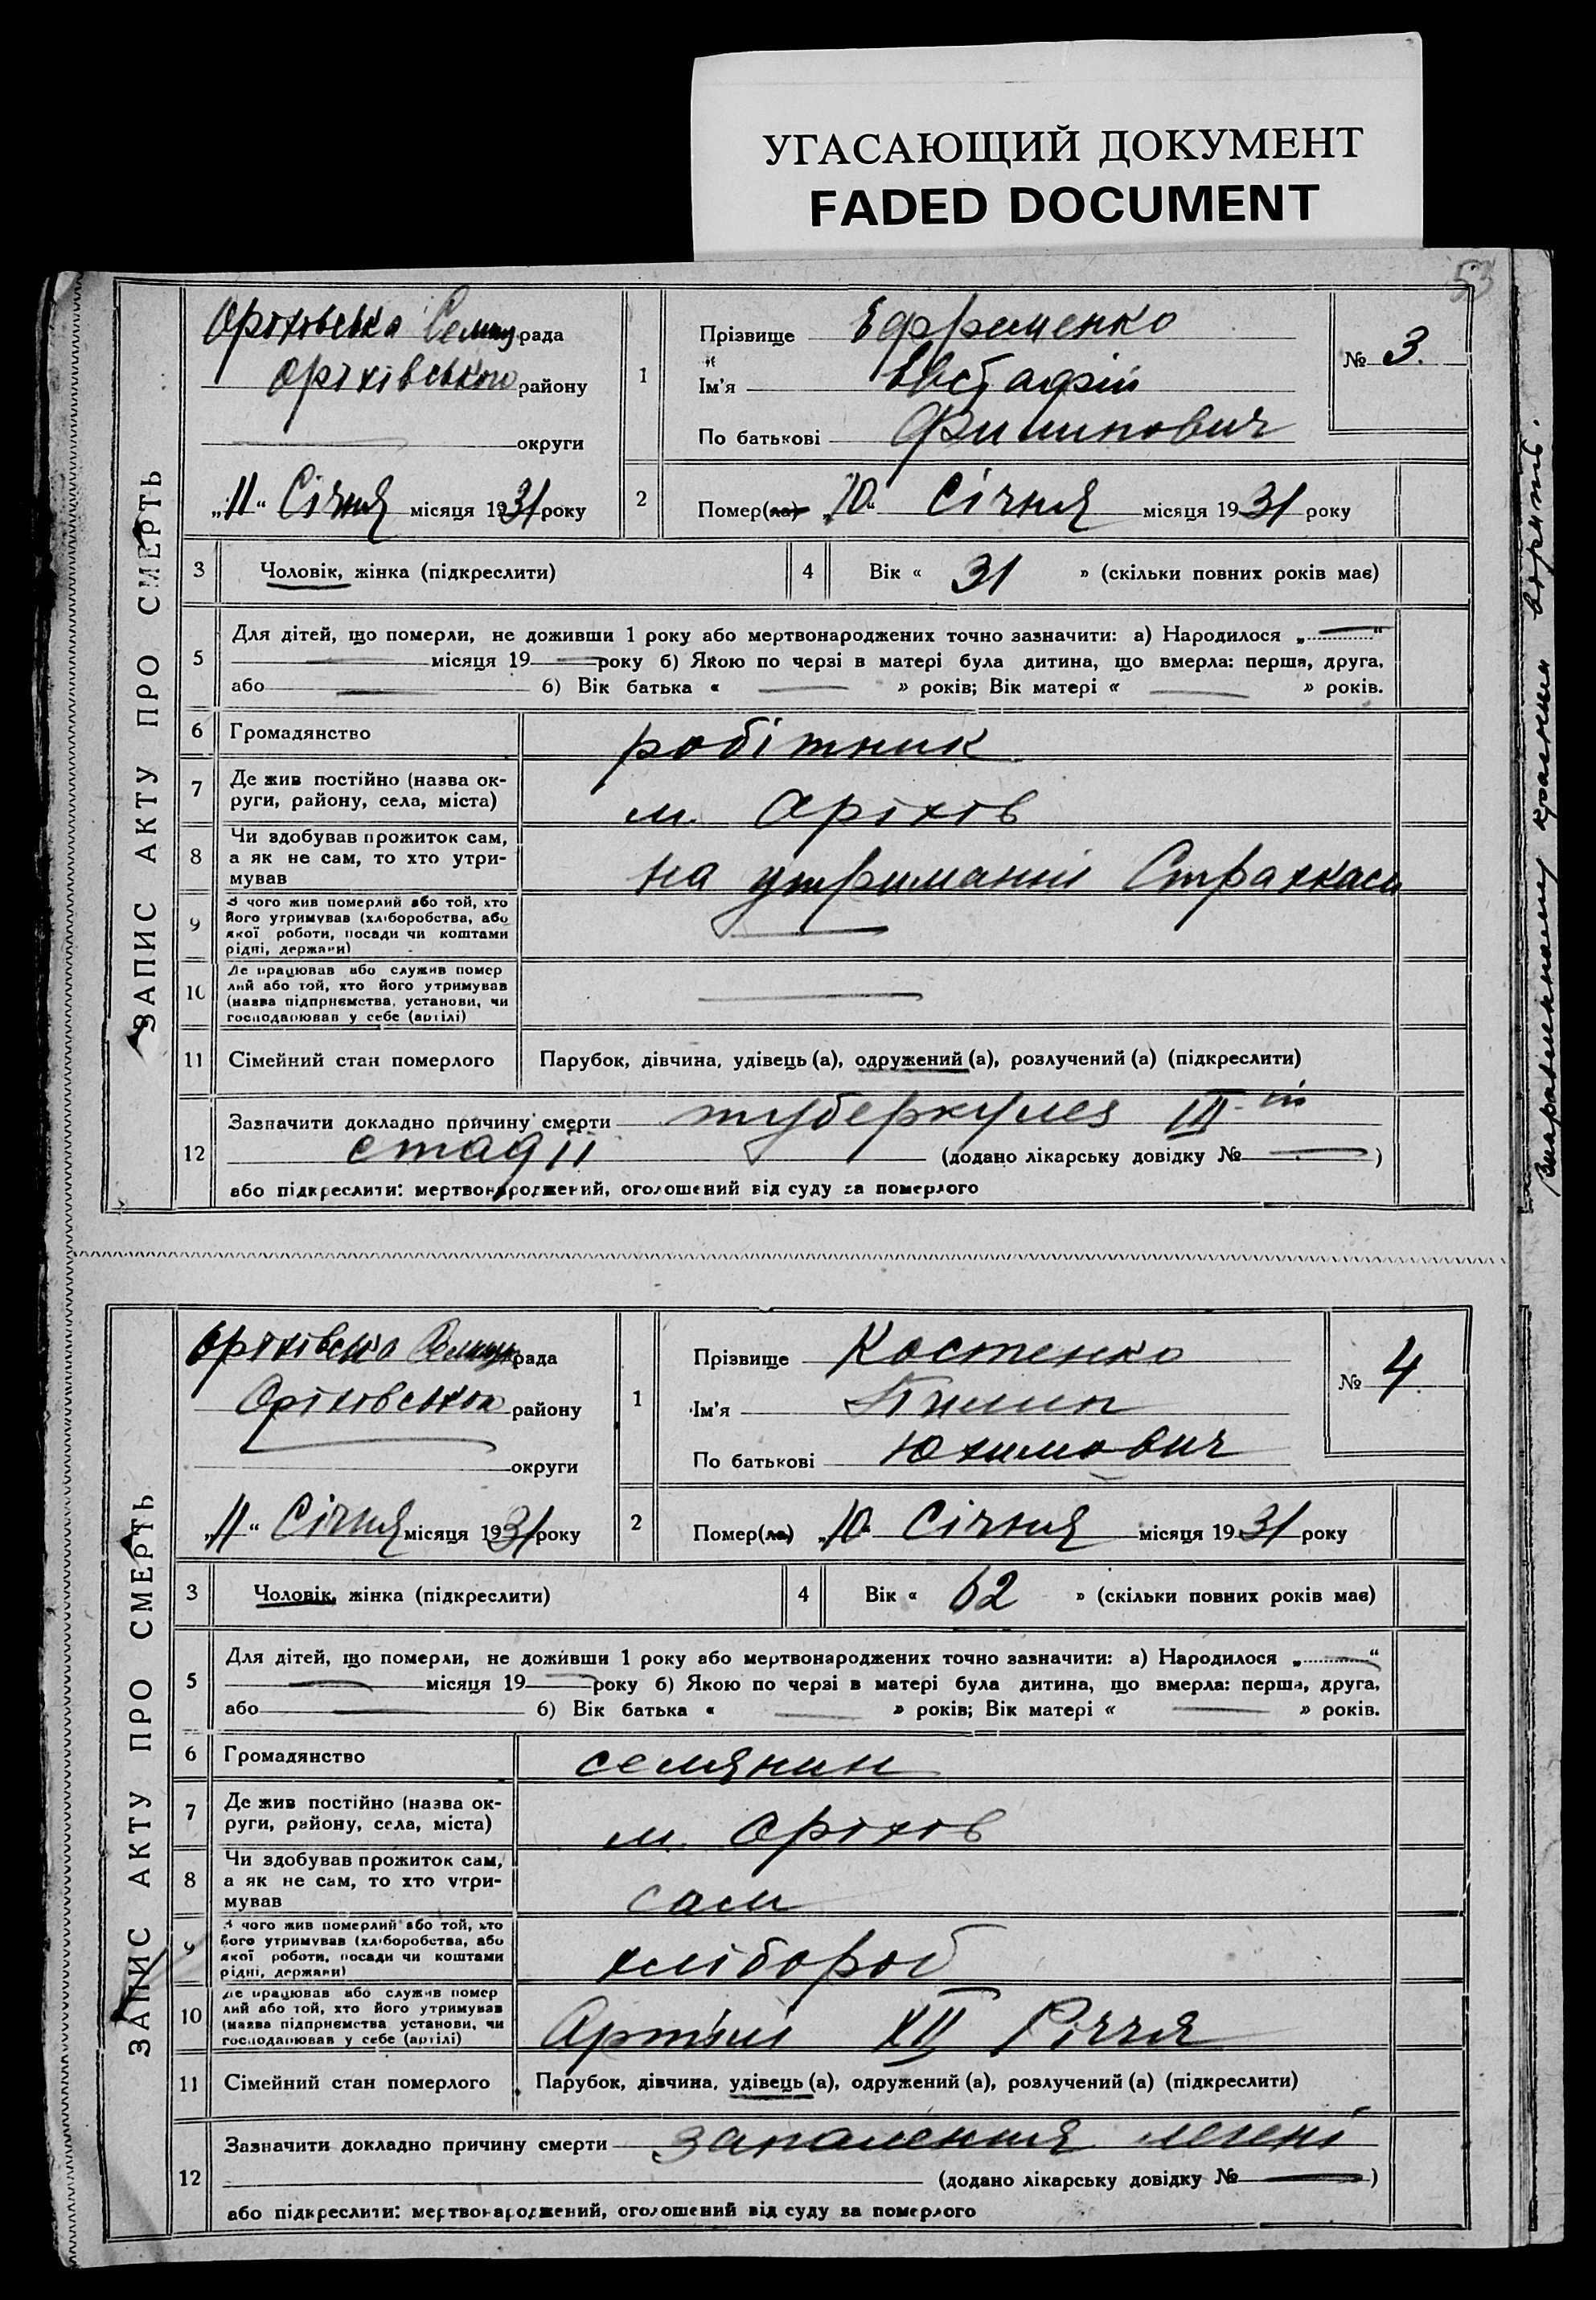 УГАСАЮЩИЙ ДОКУМЕНТ
FADED DOCUMENT
53
ЗАПИС АКТУ ПРО СМЕРТЬ
Оріховська Селищ рада
Оріхівського району
округи
„11“ Січня місяця 1931 року
1
Прізвище Ефременко
й
Ім'я Евстафій
По батькові Филипович
№ 3.
2
Помер(ла) „10“ Січня місяця 1931 року
3 Чоловік, жінка (підкреслити)
4 Вік « 31 » (скільки повних років має)
5
Для дітей, що померли, не доживши 1 року або мертвонароджених точно зазначити: а) Народилося „ “
місяця 19 року б) Якою по черзі в матері була дитина, що вмерла: перша, друга,
або б) Вік батька « » років; Вік матері « » років.
6 Громадянство робітник
7 Де жив постійно (назва ок-
руги, району, села, міста) м. Оріхов
8 Чи здобував прожиток сам,
а як не сам, то хто утри-
мував на утриманні Страхкаси
9 З чого жив померлий або той, хто
його утримував (хліборобства, або
якої роботи, посади чи коштами
рідні, держави)
10 Де працював або служив помер
лий або той, хто його утримував
(назва підприємства, установи, чи
господарював у себе (артілі)
11 Сімейний стан померлого Парубок, дівчина, удівець (а), одружений (а), розлучений (а) (підкреслити)
12 Зазначити докладно причину смерти туберкулез III-ій
стадіі (додано лікарську довідку № )
або підкреслити: мертвонароджений, оголошений від суду за померлого
ЗАПИС АКТУ ПРО СМЕРТЬ
Оріхівська Селищ рада
Оріховського району
округи
„11“ Січня місяця 1931 року
1
Прізвище Костенко
Ім'я Пилип
По батькові Юхимович
№ 4.
2
Помер(ла) „10“ Січня місяця 1931 року
3 Чоловік, жінка (підкреслити)
4 Вік « 62 » (скільки повних років має)
5
Для дітей, що померли, не доживши 1 року або мертвонароджених точно зазначити: а) Народилося „ “
місяця 19 року б) Якою по черзі в матері була дитина, що вмерла: перша, друга,
або б) Вік батька « » років; Вік матері « » років.
6 Громадянство селянин
7 Де жив постійно (назва ок-
руги, району, села, міста) м. Оріхов
8 Чи здобував прожиток сам,
а як не сам, то хто утри-
мував сам
9 З чого жив померлий або той, хто
його утримував (хліборобства, або
якої роботи, посади чи коштами
рідні, держави) хлібороб
10 Де працював або служив помер
лий або той, хто його утримував
(назва підприємства, установи, чи
господарював у себе (артілі) Артілі XII Річчя
11 Сімейний стан померлого Парубок, дівчина, удівець (а), одружений (а), розлучений (а) (підкреслити)
12 Зазначити докладно причину смерти запалення легені
(додано лікарську довідку № )
або підкреслити: мертвонароджений, оголошений від суду за померлого